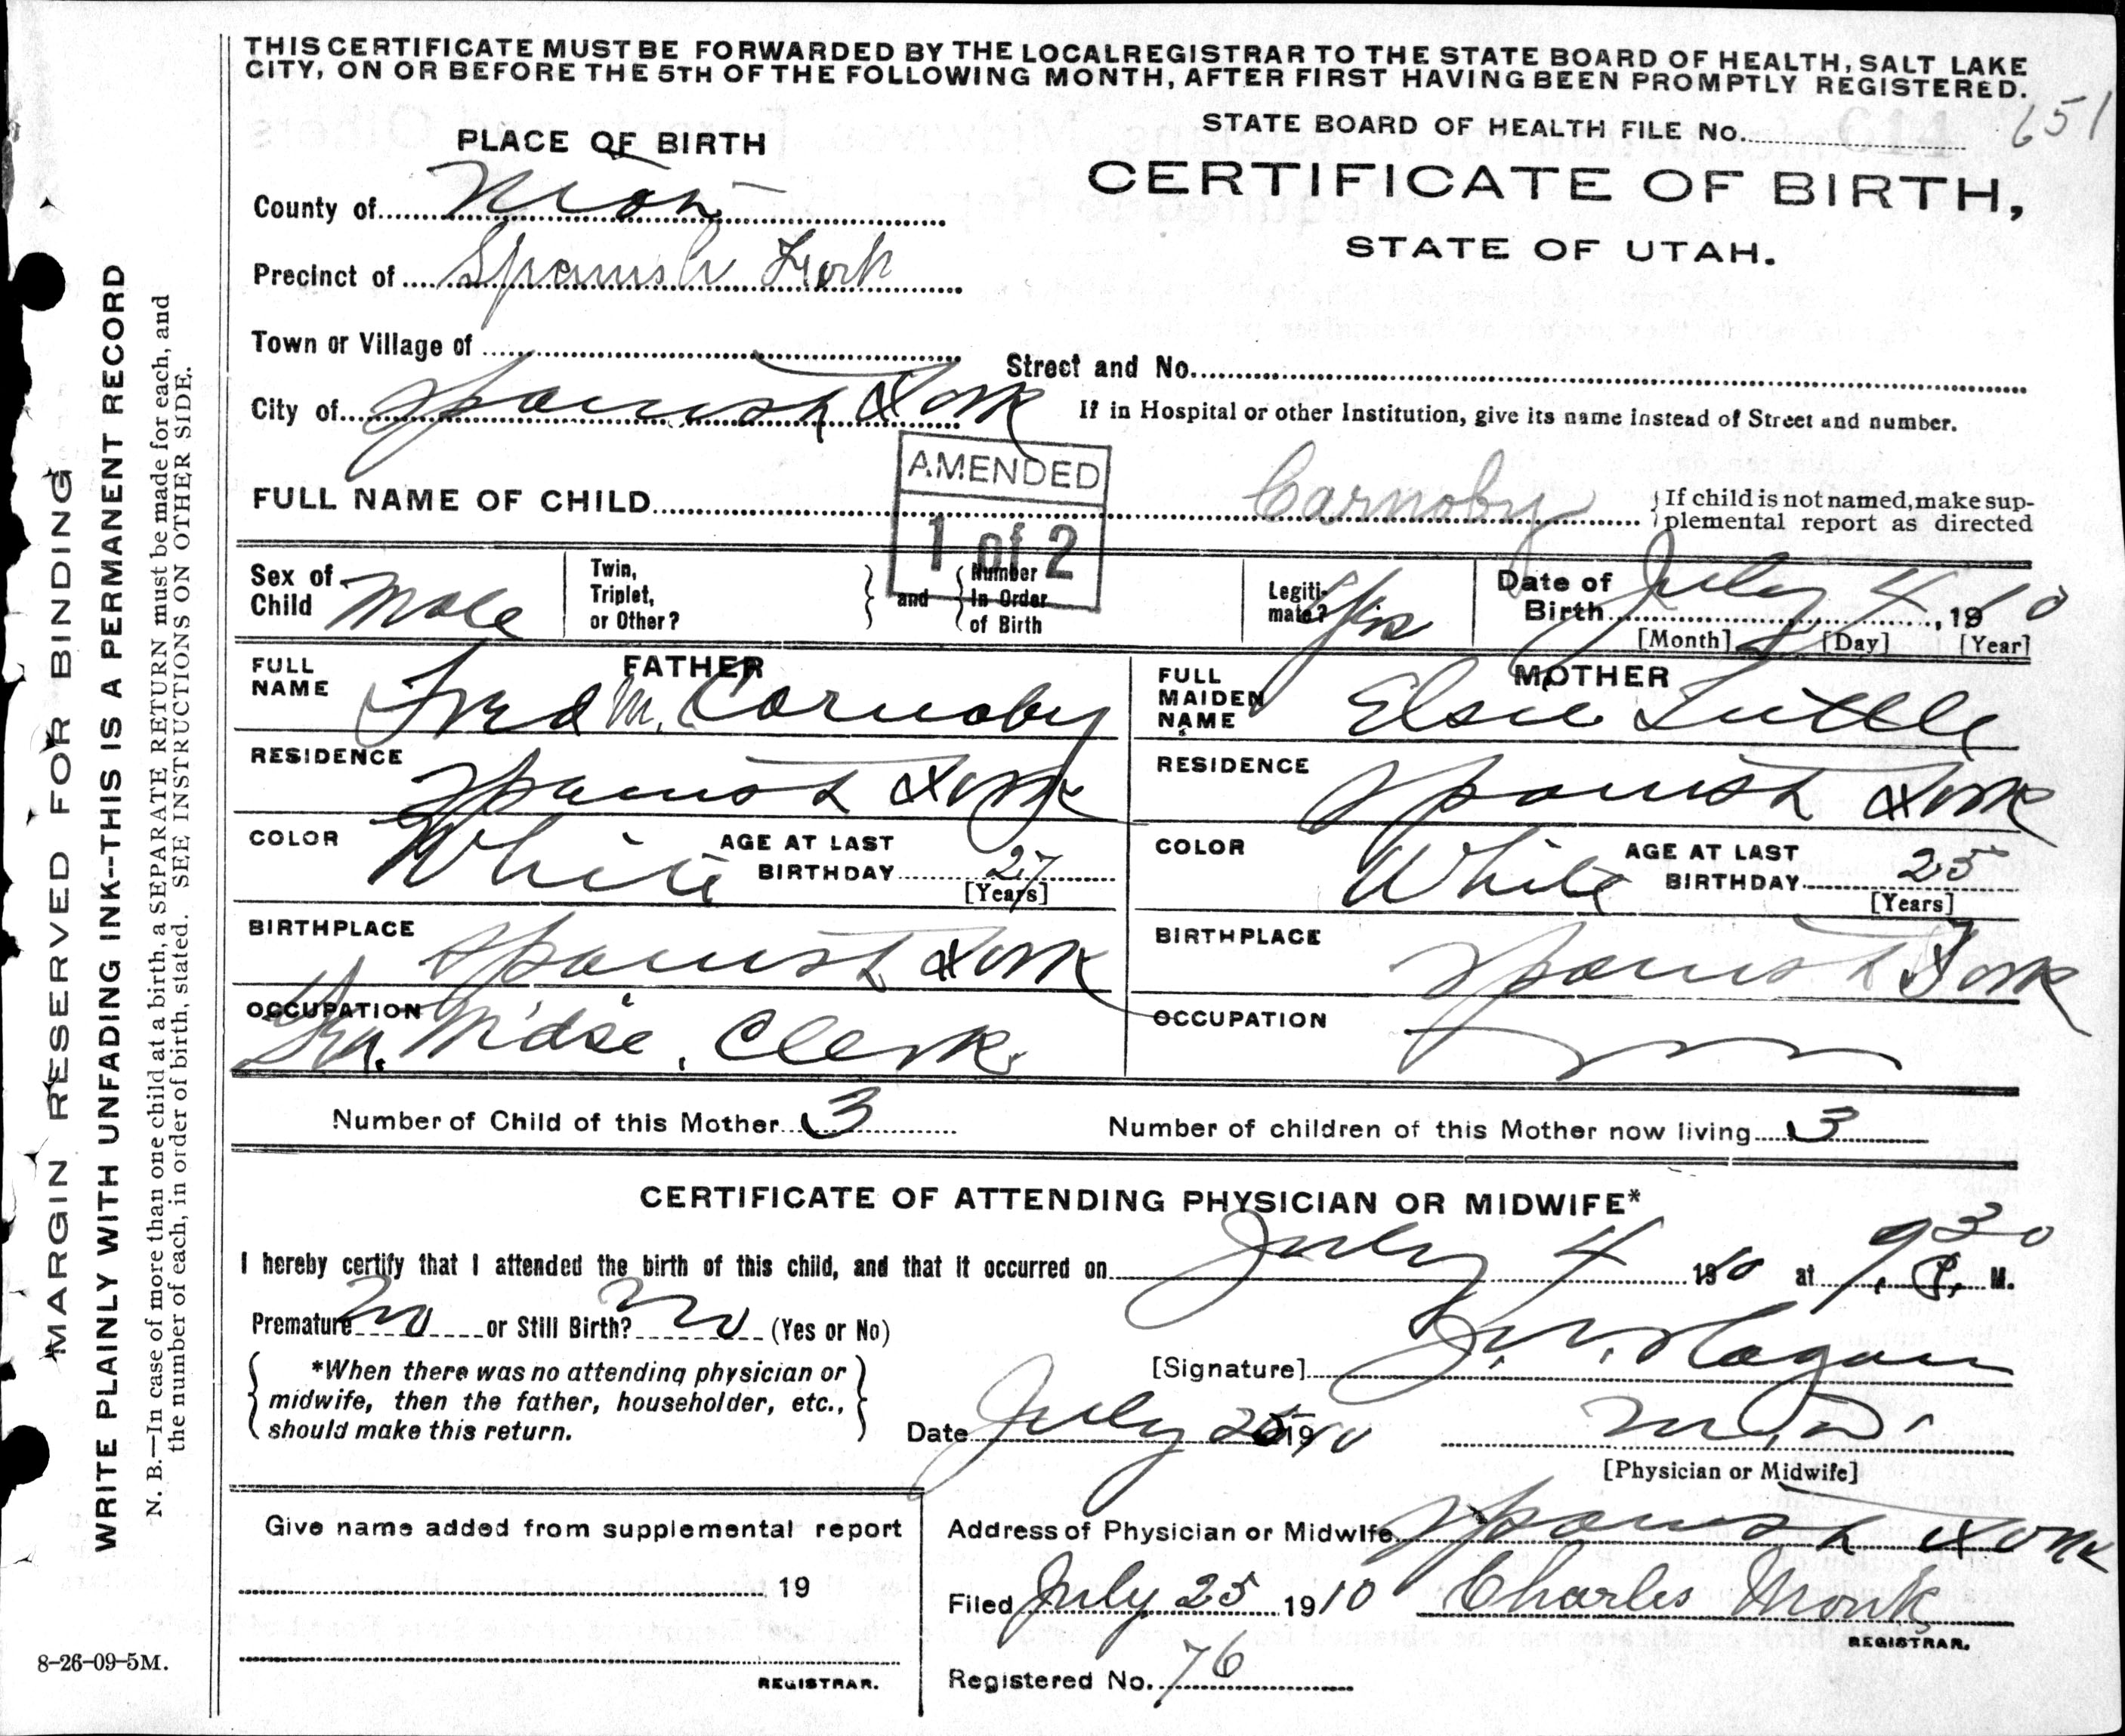 THIS CERTIFICATE MUST BE FORWARDED BY THE LOCAL REGISTRAR TO THE STATE BOARD OF HEALTH, SALT LAKE
CITY, ON OR BEFORE THE 5TH OF THE FOLLOWING MONTH, AFTER FIRST HAVING BEEN PROMPTLY REGISTERED.
651
PLACE OF BIRTH
STATE BOARD OF HEALTH FILE No.
CERTIFICATE OF BIRTH,
STATE OF UTAH.
County of
Precinct of Spanish Fork
Town or Village of
Street and No.
City of Spanish Fork
If in Hospital or other Institution, give its name instead of Street and number.
AMENDED
1 of 2
FULL NAME OF CHILD Carnoby
If child is not named, make sup-
plemental report as directed
Sex of Child Male
Twin, Triplet, or Other?
and
Number In Order of Birth
Legiti-mate? Yes
Date of Birth July 4, 1910
[Month] [Day] [Year]
FATHER
FULL NAME Fred M. Carnoby
RESIDENCE Spanish Fork
COLOR White
AGE AT LAST BIRTHDAY 27
[Years]
BIRTHPLACE Spanish Fork
OCCUPATION Gen. M'dse. Clerk
MOTHER
FULL MAIDEN NAME Elsie Tuttle
RESIDENCE Spanish Fork
COLOR White
AGE AT LAST BIRTHDAY 25
[Years]
BIRTHPLACE Spanish Fork
OCCUPATION
Number of Child of this Mother 3
Number of children of this Mother now living 3
CERTIFICATE OF ATTENDING PHYSICIAN OR MIDWIFE*
I hereby certify that I attended the birth of this child, and that it occurred on July 4 1910 at 9.30 P. M.
Premature No or Still Birth? No (Yes or No)
*When there was no attending physician or
midwife, then the father, householder, etc.,
should make this return.
[Signature] J. W. Hagan
Date July 25 1910
M.D.
[Physician or Midwife]
Address of Physician or Midwife Spanish Fork
Filed July 25 1910 Charles Monk
REGISTRAR.
Registered No. 76
Give name added from supplemental report
19
REGISTRAR.
8-26-09-5M.
MARGIN RESERVED FOR BINDING
WRITE PLAINLY WITH UNFADING INK--THIS IS A PERMANENT RECORD
N. B.—In case of more than one child at a birth, a SEPARATE RETURN must be made for each, and
the number of each, in order of birth, stated. SEE INSTRUCTIONS ON OTHER SIDE.